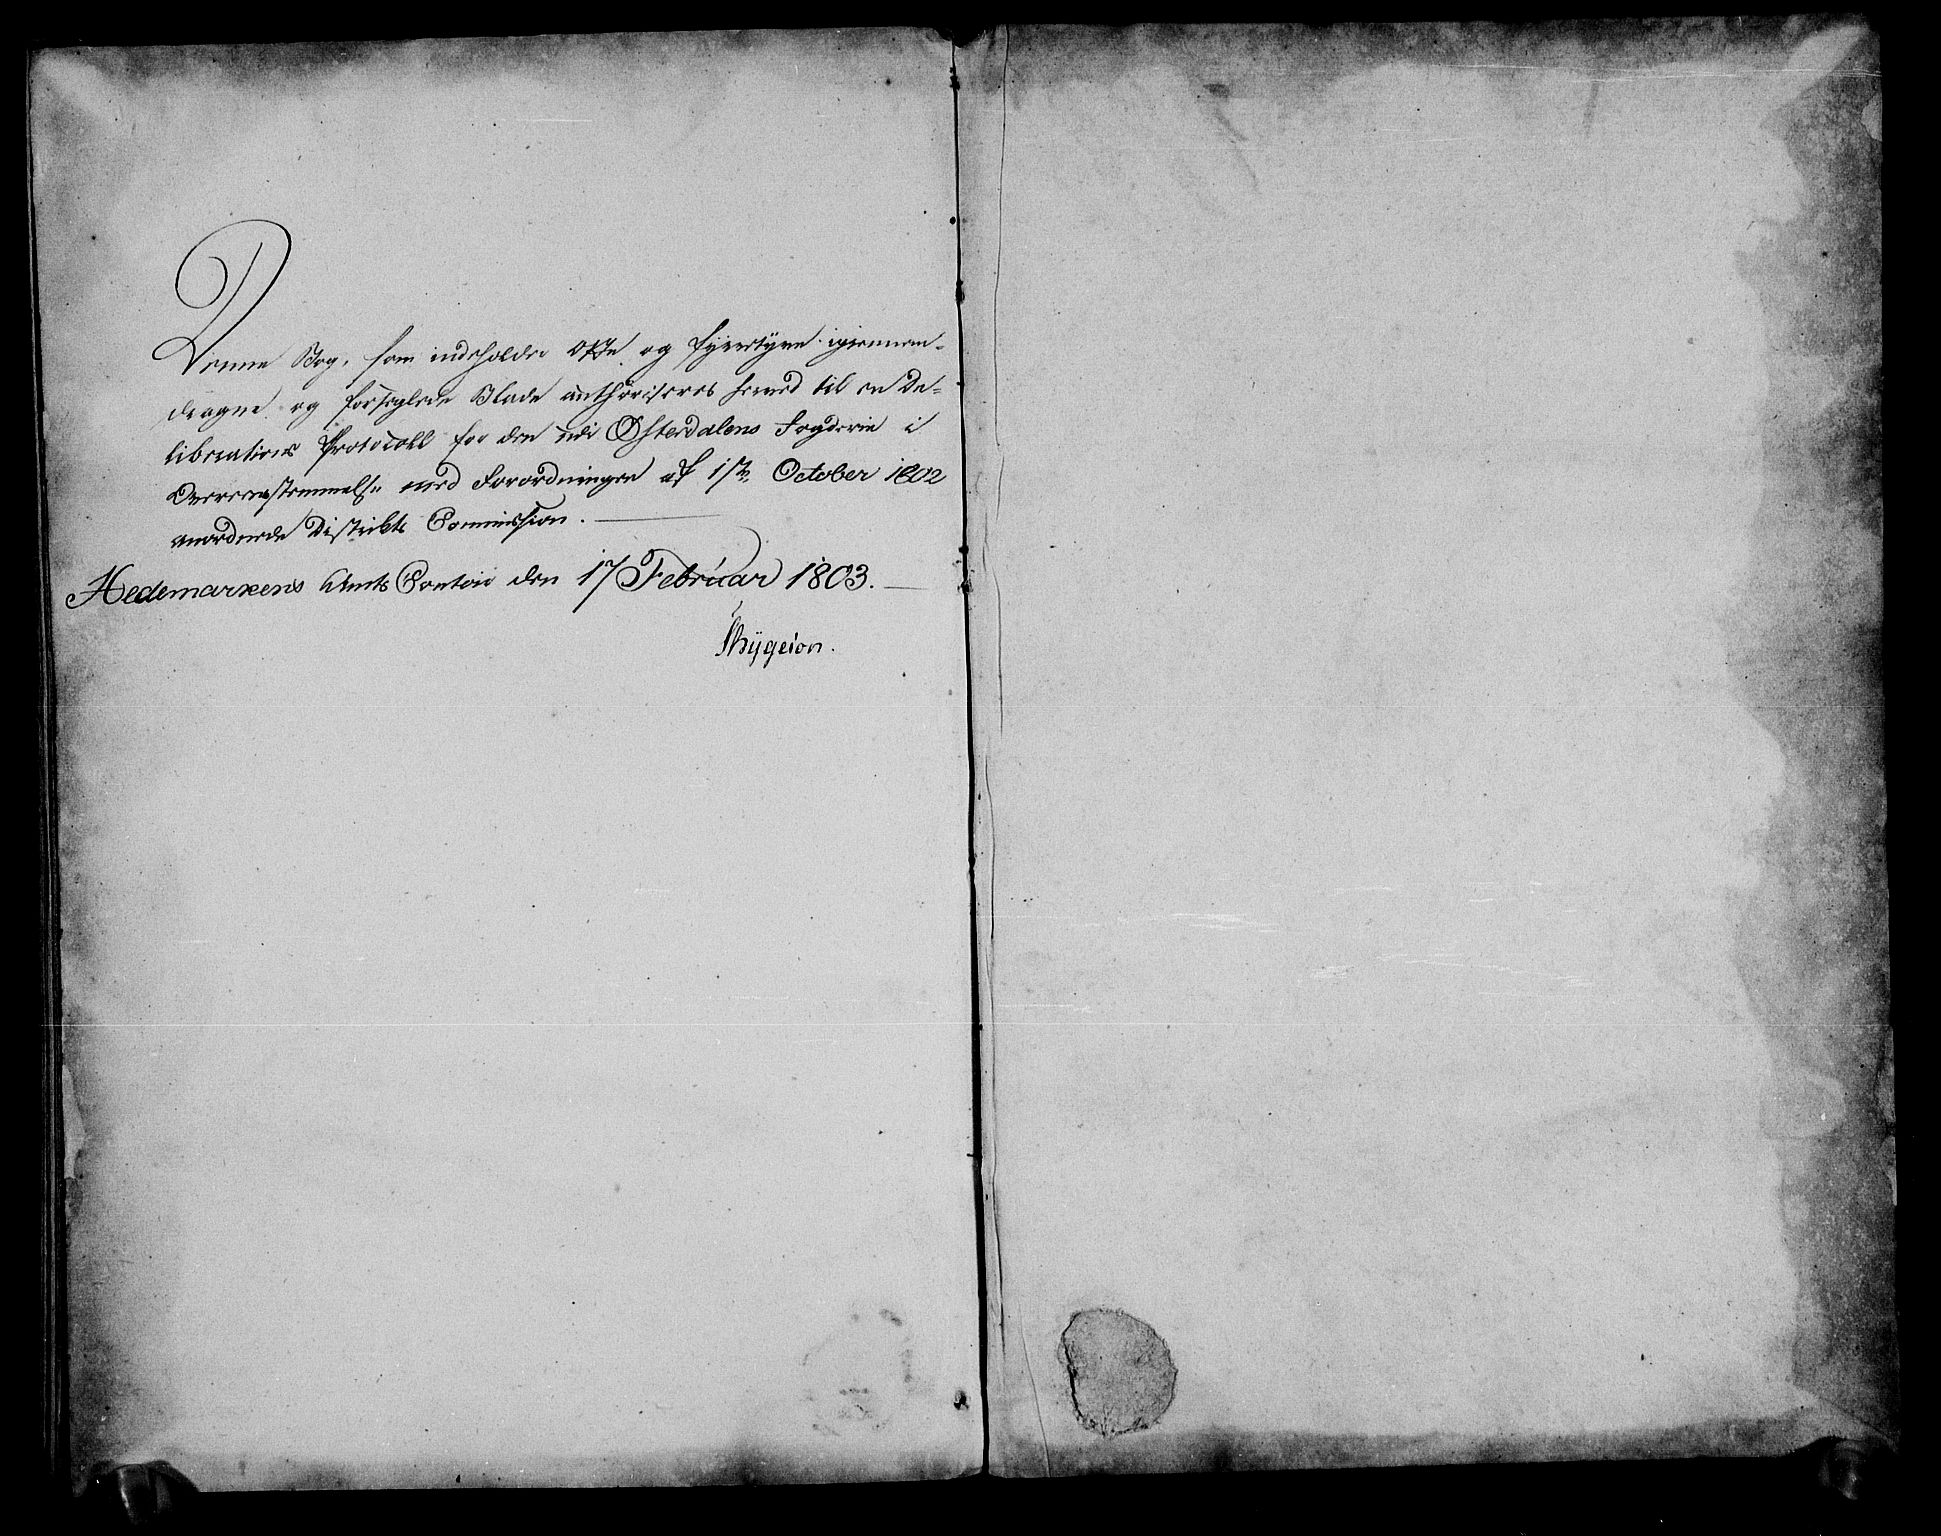 Denne Bog, som indeholder Otte og Fyrretyve igiennem-
dragne og forseglede Blade authoriseres herved til en De-
liberations Protocoll for den udi Østerdalens Fogderie i
Overeensstemmelse med Forordningen af 1ste October 1802
anordnede Distrikts Commission.
Hedemarkens Amts Contoir den 17 Februar 1803.
Thygeson.